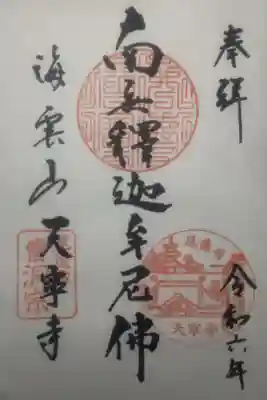 奉拝
令和六年
南無釋迦牟尼佛
海雲山天寧寺
尾道市
天寧寺